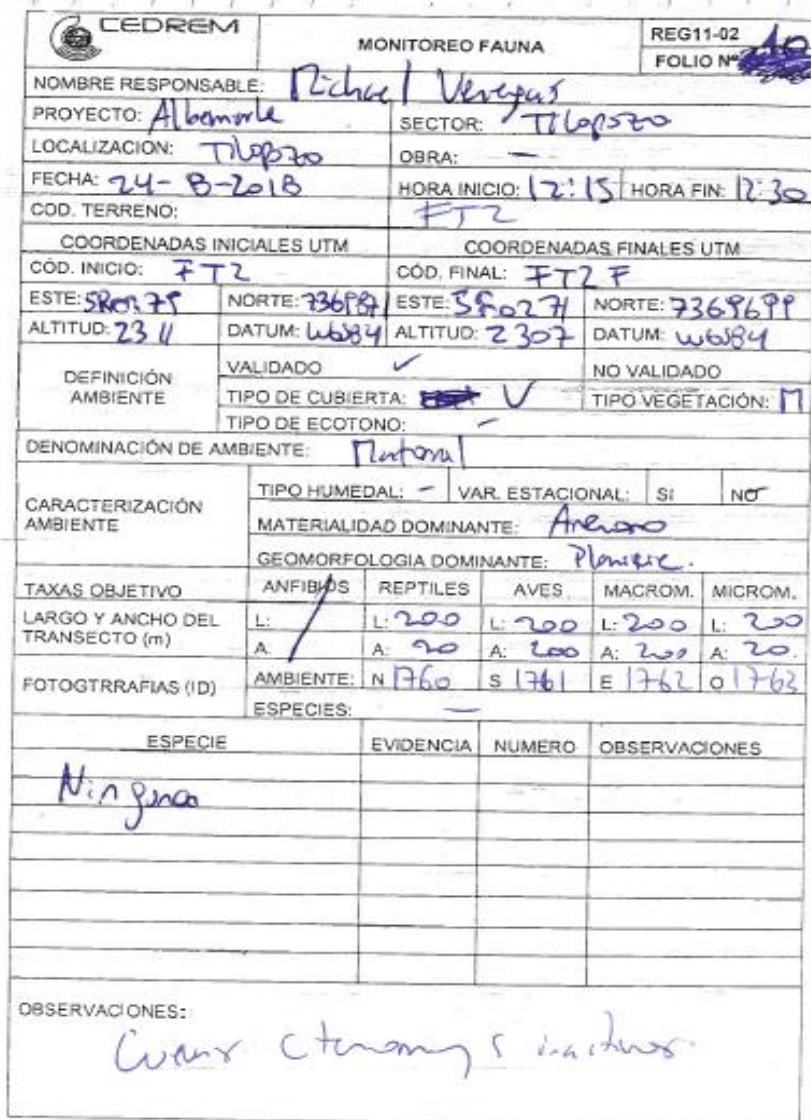 CEDREM
MONITOREO FAUNA
REG11-02
FOLIO Nº 10
NOMBRE RESPONSABLE: Michael
PROYECTO: Albemarle SECTOR: Tilopozo
LOCALIZACION: Tilopozo OBRA: —
FECHA: 24-8-2018 HORA INICIO: 12:15 HORA FIN: 12:30
COD. TERRENO: FT2
COORDENADAS INICIALES UTM COORDENADAS FINALES UTM
CÓD. INICIO: FT2 CÓD. FINAL: FT2 F
ESTE: NORTE: ESTE: 580271 NORTE: 7369699
ALTITUD: 2311 DATUM: WGS84 ALTITUD: 2307 DATUM: WGS84
DEFINICIÓN AMBIENTE
VALIDADO ✓ NO VALIDADO
TIPO DE CUBIERTA: V TIPO VEGETACIÓN: M
TIPO DE ECOTONO: —
DENOMINACIÓN DE AMBIENTE: Matorral
CARACTERIZACIÓN AMBIENTE
TIPO HUMEDAL: — VAR. ESTACIONAL: SI NO
MATERIALIDAD DOMINANTE: Arenoso
GEOMORFOLOGIA DOMINANTE: Planicie.
TAXAS OBJETIVO ANFIBIOS REPTILES AVES MACROM. MICROM.
LARGO Y ANCHO DEL TRANSECTO (m)
L: L: 200 L: 200 L: 200 L: 200
A: A: 20 A: 200 A: 200 A: 20.
FOTOGTRRAFIAS (ID)
AMBIENTE: N 1760 S 1761 E 1762 O 1763
ESPECIES: —
ESPECIE EVIDENCIA NUMERO OBSERVACIONES
Ninguna
OBSERVACIONES:
Ctenomys inactivas